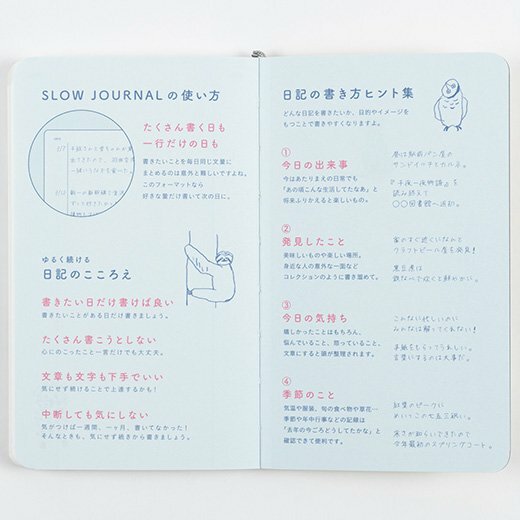 SLOW JOURNALの使い方
たくさん書く日も
一行だけの日も
書きたいことを毎日同じ文量に
まとめるのは意外と難しいですよね。
このフォーマットなら
好きな量だけ書いて次の日に。
ゆるく続ける
日記のこころえ
書きたい日だけ書けば良い
書きたいことがある日だけ書きましょう。
たくさん書こうとしない
心にのこったこと一言だけでも大丈夫。
文章も文字も下手でいい
気にせず続けることで上達するかも!
中断しても気にしない
気がつけば一週間、一ヶ月、書いてなかった!
そんなときも、気にせず続きから書きましょう。
日記の書き方ヒント集
どんな日記を書きたいか、目的やイメージを
もつことで書きやすくなりますよ。
①
今日の出来事
今はあたりまえの日常でも
「あの頃こんな生活してたなあ」と
将来ふりかえると楽しいもの。
昼は駅前パン屋の
サンドイッチとカルネ。
『千夜一夜物語』を
読み終えて
〇〇図書館へ返却。
②
発見したこと
美味しいものや楽しい場所。
身近な人の意外な一面など
コレクションのように書き溜めて。
家のすぐ近くになんと
クラフトビール屋を発見!
夏豆腐は
鉄なべで炊くと鮮やかに。
③
今日の気持ち
嬉しかったことはもちろん、
悩んでいること、怒っていること、
文章にすると頭が整理されます。
こんなに忙しいのに
みんなは解ってくれない!
手紙をもらってうれしい。
言葉にするのは大事だ。
④
季節のこと
気温や服装、旬の食べ物や草花…
季節や年中行事などの記録は
「去年の今ごろどうしてたかな」と
確認できて便利です。
紅葉のピークに
めいっこの七五三祝い。
寒さが和らいできたので
今年最初のスプリングコート。